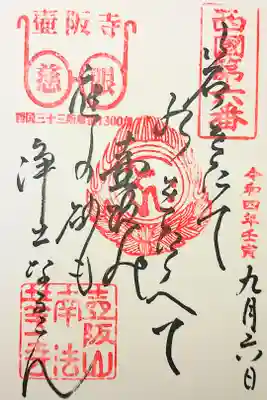 西國第六番
令和四年壬寅
九月六日
岩をたて
水をたゝへて
壺阪の
庭の砂も
浄土なるらん
壺阪寺
慈眼
西国三十三所草創1300年
壺阪山
南法
華寺